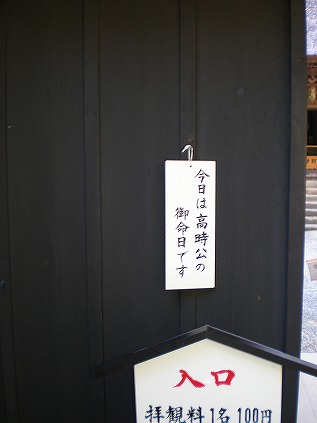 今日は高時公の
御命日です
入口
拝観料1名100円